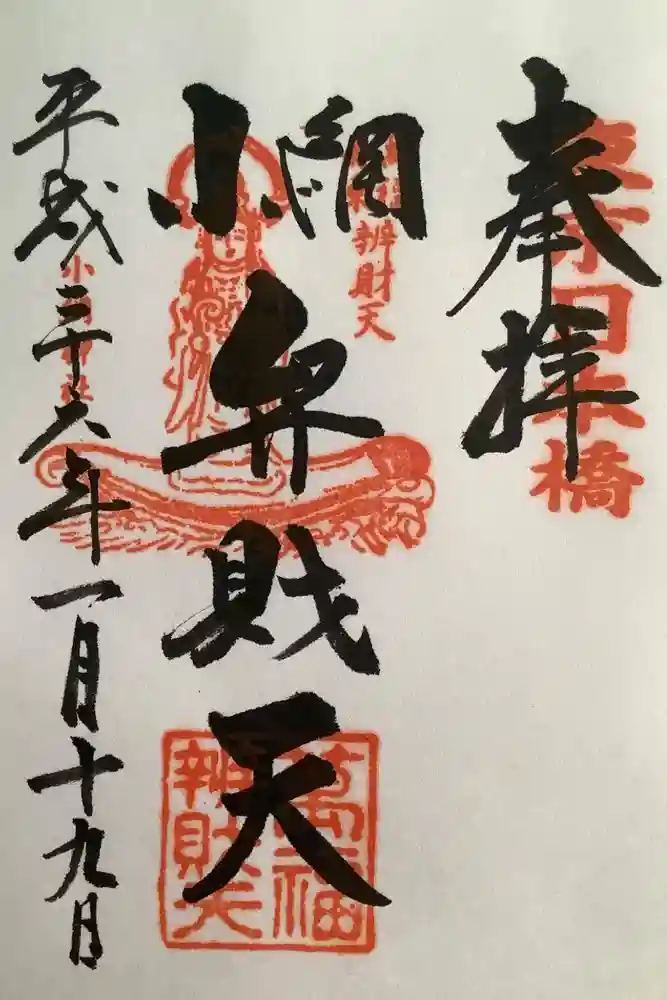 奉拝
東京日本橋
小網
弁財天
辨財天
萬福
辨財天
平成三十六年一月十九日